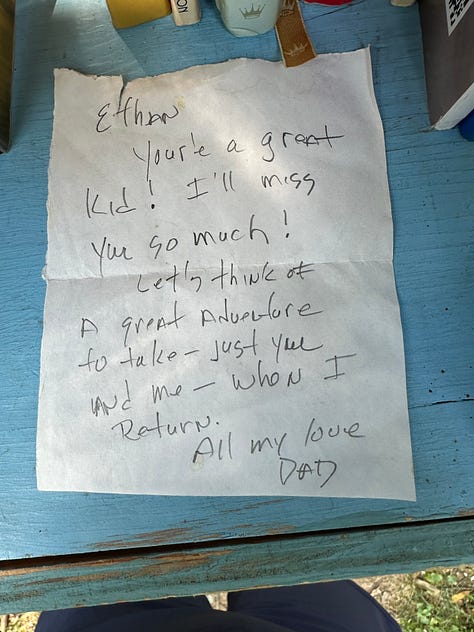 Ethan
You're a great
Kid! I'll miss
you so much!
Let's think of
A great Adventure
to take – just you
and me – when I
Return.
All my love
DAD